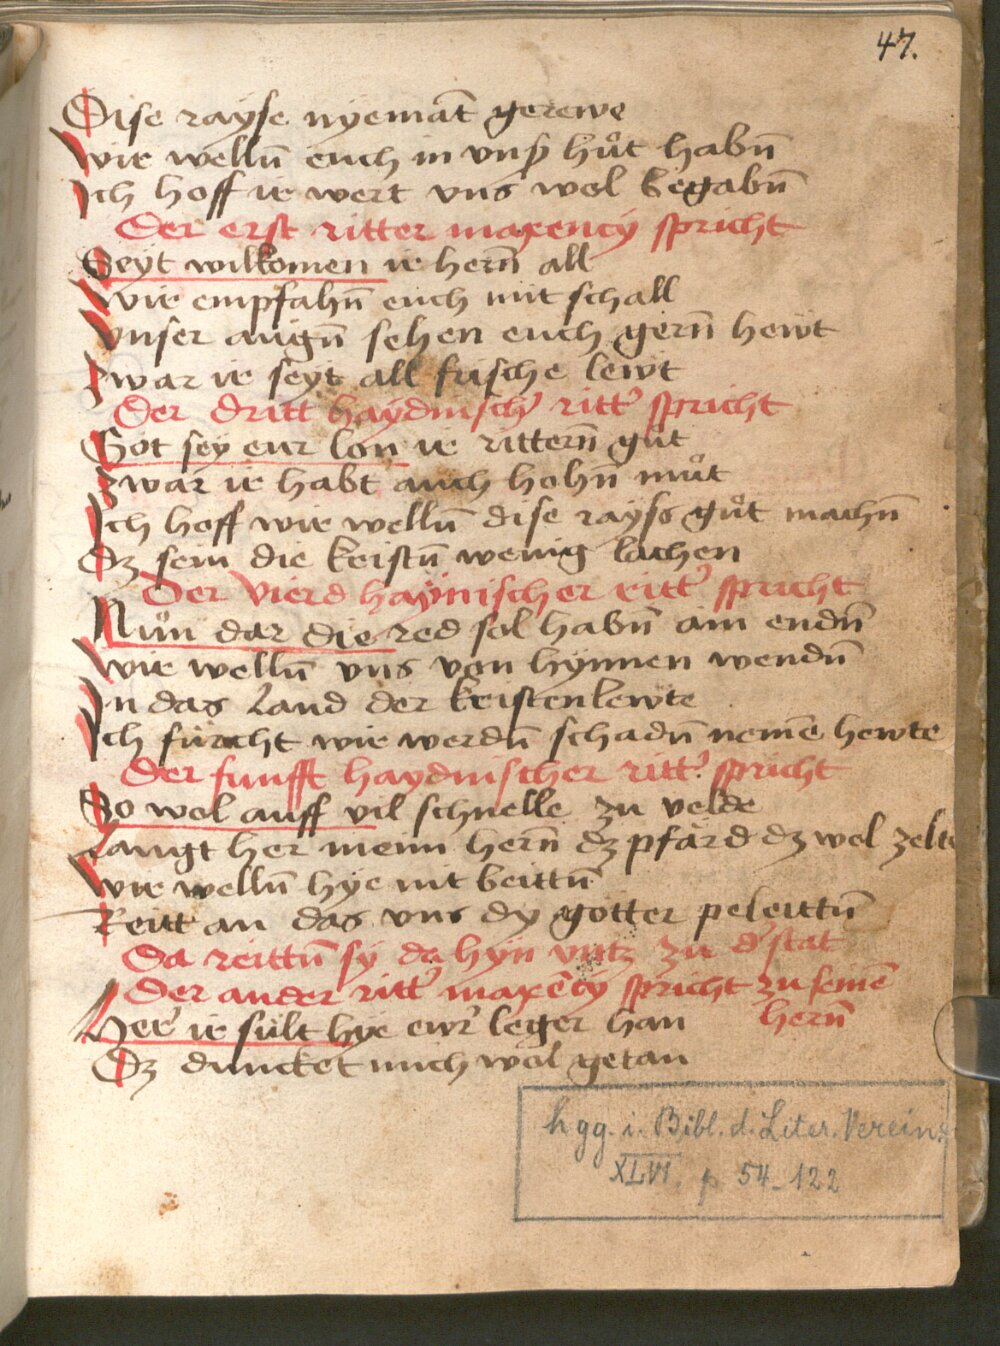 47.
Dise rayse nyemāt gerewe
Wir welln̄ euch in vnsʼ hůt habn̄
Ich hoff ir wert vns wol begabn̄
Der erst ritter maxency spricht
Seyt wilkomen ir hern̄ all
Wir empfahn̄ euch mit schall
Vnser augn̄ sehen euch gern̄ hewt
Zwar ir seyt all frische lewt
Der dritt haydnischʼ rittʼ spricht
Got sey eur lon ir rittern̄ gůt
Zwar ir habt auch hohn̄ můt
Ich hoff wir welln̄ dise rayss gůt machn̄
Dz sein die kristn̄ wenig lachen
Der vierd hayinischer rittʼ spricht
Nůn dar die red sol habn̄ ain endn̄
Wir welln̄ vns von hynnen wendn̄
In das Land der kristenlewte
Ich fürcht wir werdn̄ schadn̄ nemē hewte
Der funfft haydnischer rittʼ spricht
So wol auff vil schnelle zu velde
Langt her meim hern̄ dz pfärd dz wol zelte
Wir welln̄ hye nit beittn̄
Reitt an das vns dy götter peleittn̄
Da reittn̄ sy da hyn vntz zu dʼ stat
Der ander rittʼ maxēcy spricht zu seinē
hern̄
Herʼ ir sült hye ewrʼ leger han
Dz duncket mich wol getan
hgg. i. Bibl. d. Liter. Vereins
XLVI. p 54-122